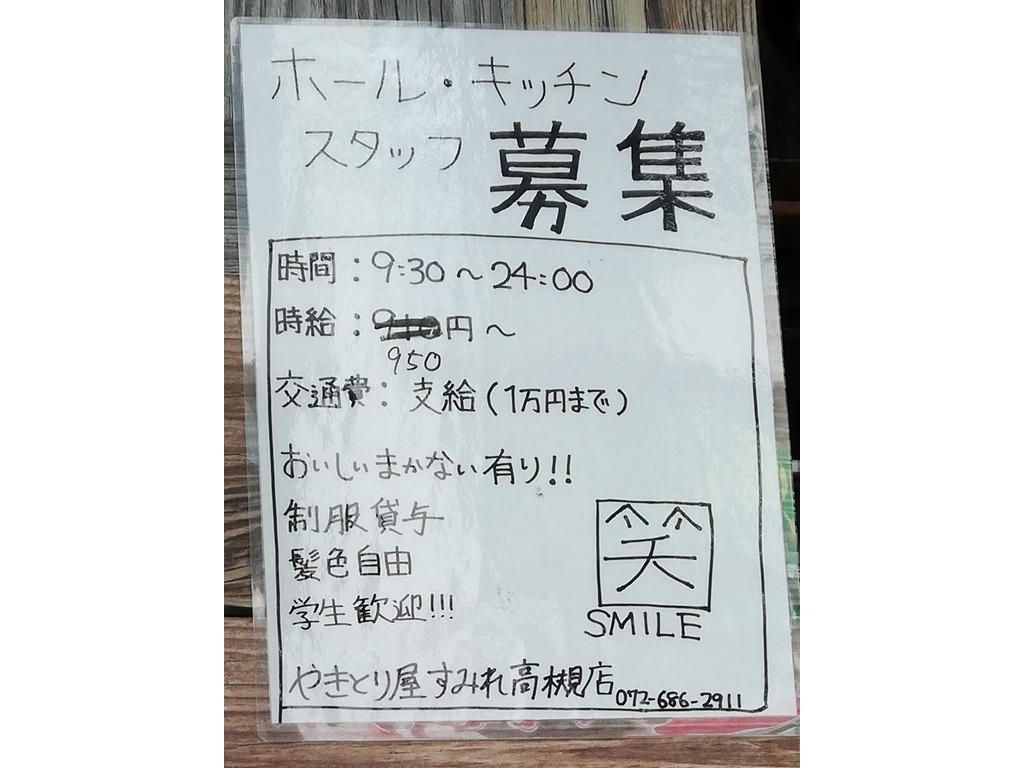 ホール・キッチン
スタッフ 募集
時間：9:30～24:00
時給：円～
950
交通費：支給(1万円まで)
おいしいまかない有り!!
制服貸与
髪色自由
学生歓迎!!!
笑
SMILE
やきとり屋すみれ高槻店 072-686-2911